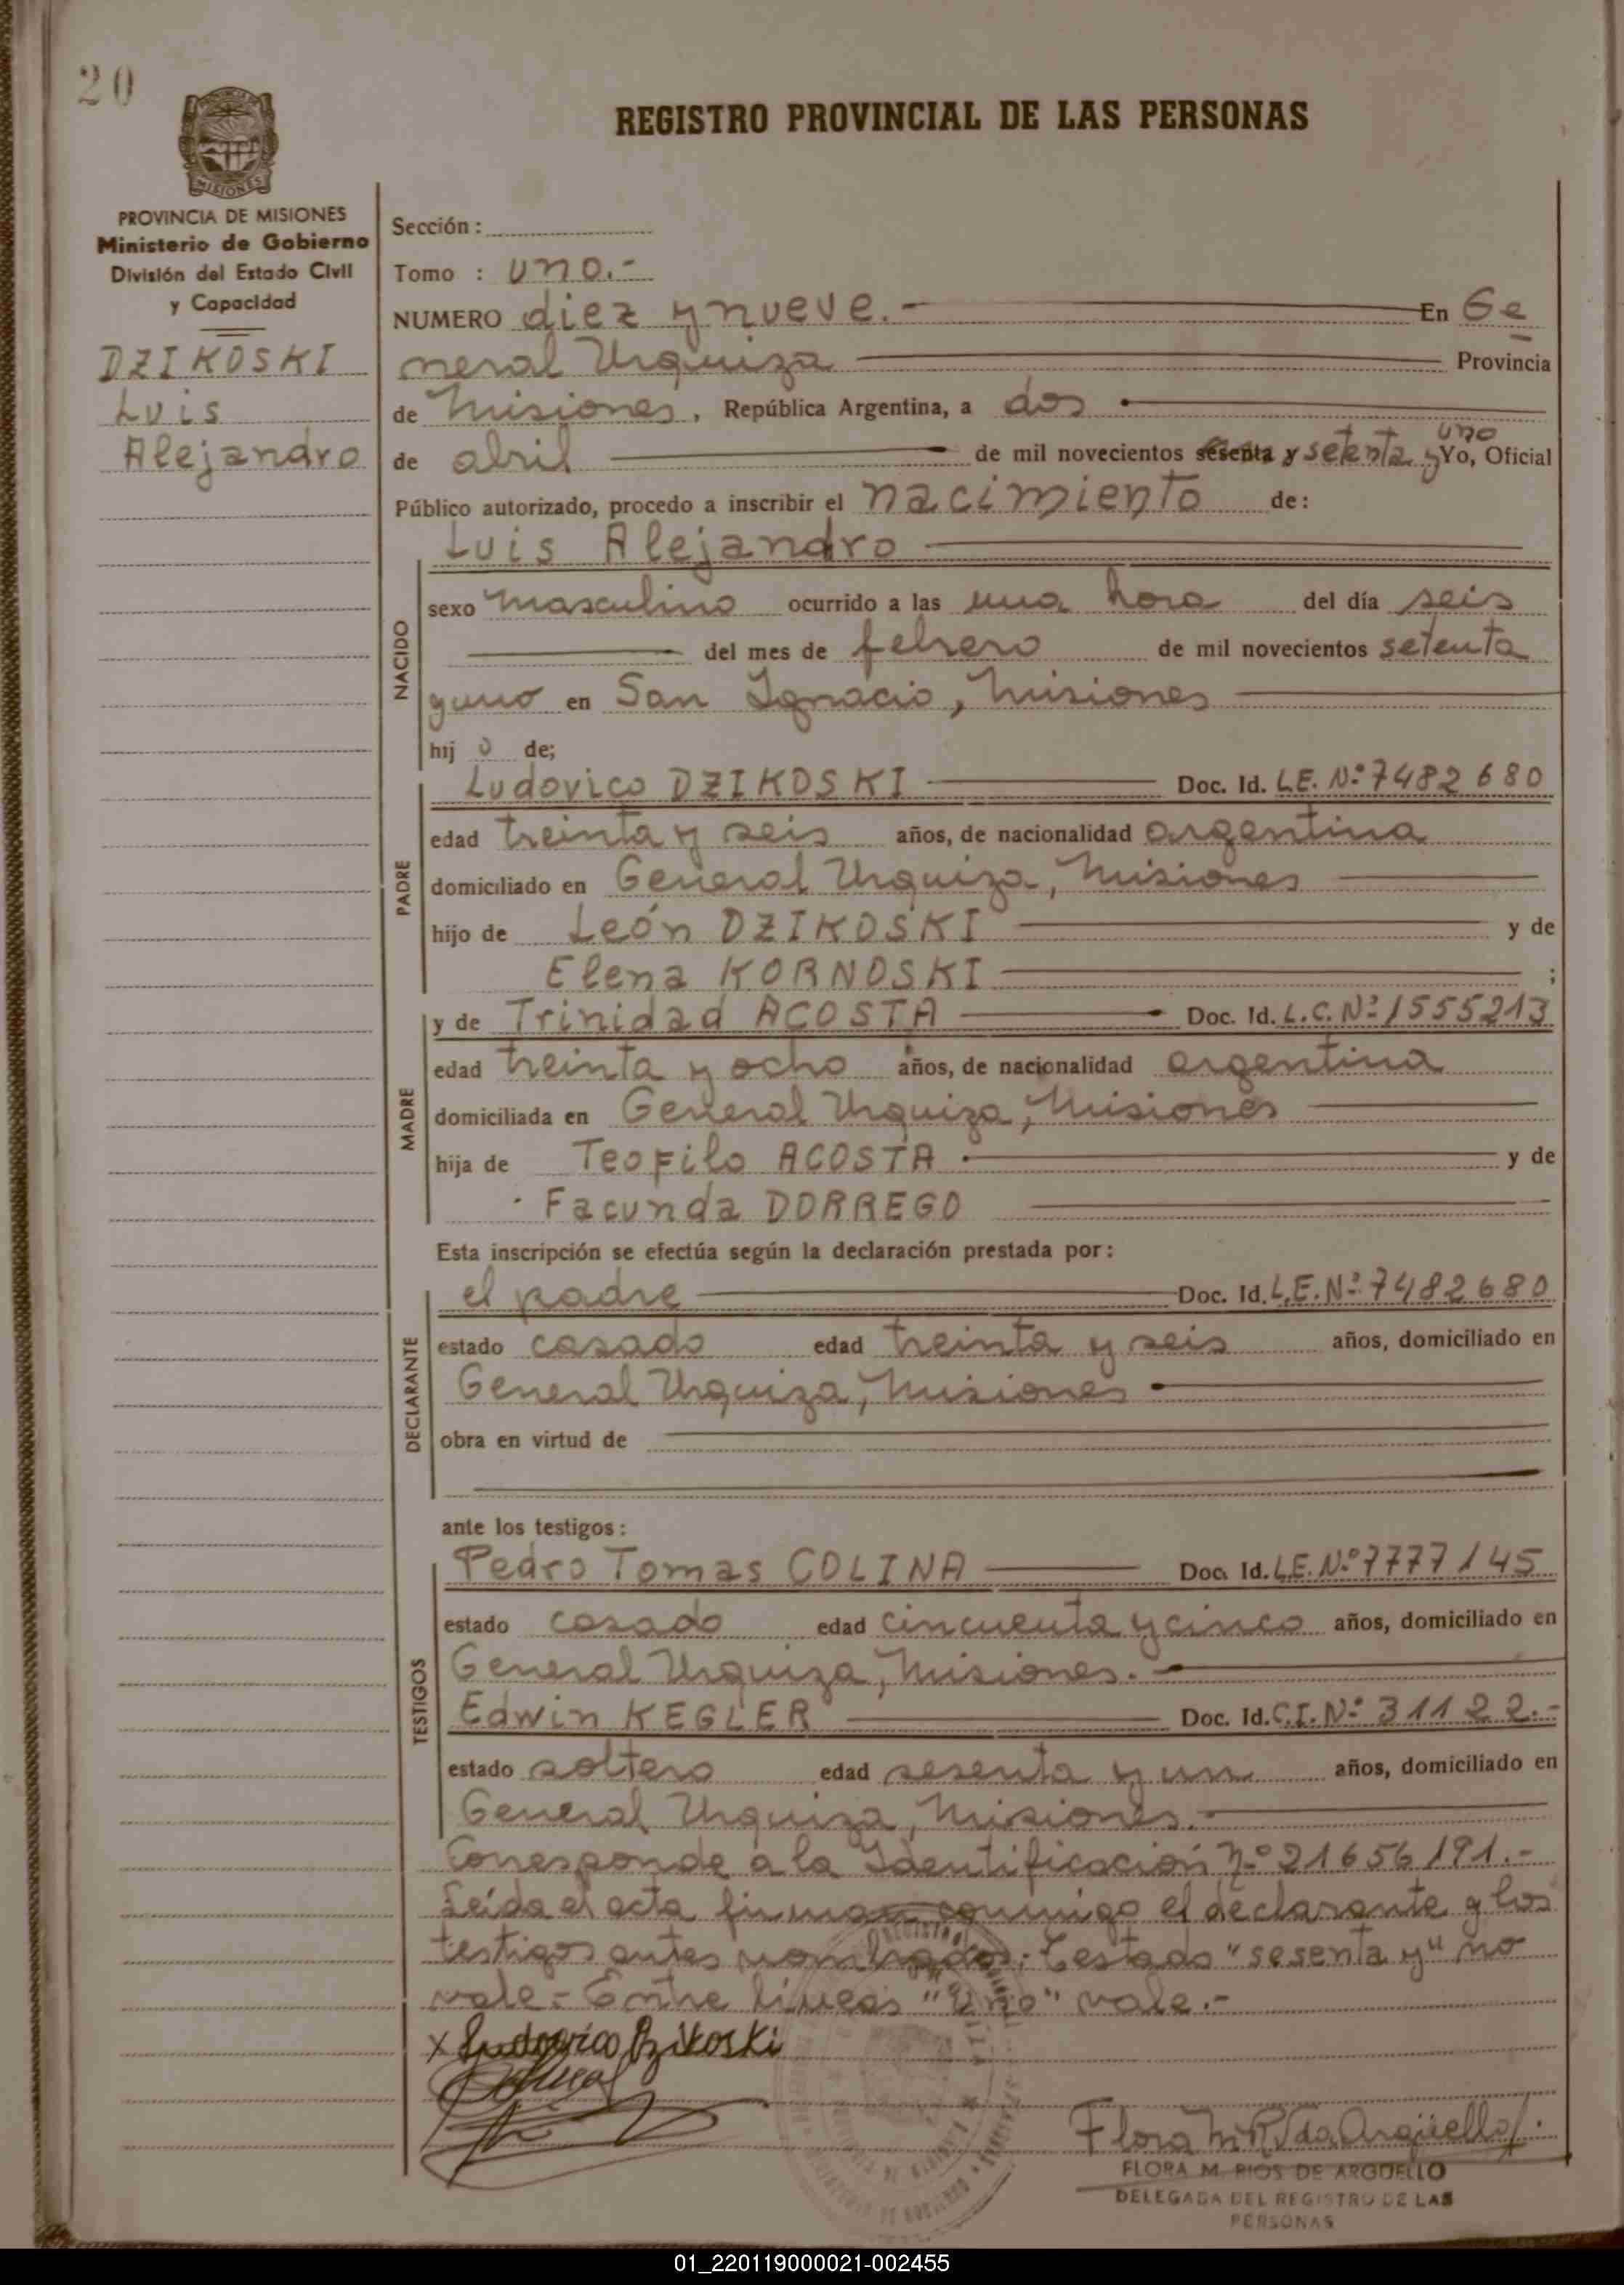 20
REGISTRO PROVINCIAL DE LAS PERSONAS
MISIONES
PROVINCIA DE MISIONES
Ministerio de Gobierno
División del Estado Civil
y Capacidad
DZIKOSKI
Luis
Alejandro
Sección:
Tomo : uno.-
NUMERO diez y nueve.- En Ge
neral Urquiza Provincia
de Misiones, República Argentina, a dos
de abril de mil novecientos sesenta y setenta y uno Yo, Oficial
Público autorizado, procedo a inscribir el nacimiento de:
Luis Alejandro
NACIDO
sexo masculino ocurrido a las una hora del día seis
del mes de febrero de mil novecientos setenta
y uno en San Ignacio, Misiones
hij o de;
PADRE
Ludovico DZIKOSKI Doc. Id. L.E. Nº 7482680
edad treinta y seis años, de nacionalidad argentina
domiciliado en General Urquiza, Misiones
hijo de León DZIKOSKI y de
Elena KORNOSKI ;
MADRE
y de Trinidad ACOSTA Doc. Id. L.C. Nº 1555213
edad treinta y ocho años, de nacionalidad argentina
domiciliada en General Urquiza, Misiones
hija de Teofilo ACOSTA y de
Facunda DORREGO
Esta inscripción se efectúa según la declaración prestada por:
DECLARANTE
el padre Doc. Id. L.E. Nº 7482680
estado casado edad treinta y seis años, domiciliado en
General Urquiza, Misiones
obra en virtud de
ante los testigos:
TESTIGOS
Pedro Tomas COLINA Doc. Id. L.E. Nº 7777145
estado casado edad cincuenta y cinco años, domiciliado en
General Urquiza, Misiones.-
Edwin KEGLER Doc. Id. C.I. Nº 31122.-
estado soltero edad sesenta y un años, domiciliado en
General Urquiza, Misiones.-
Corresponde a la Identificación Nº 21656191.-
Leída el acta firman conmigo el declarante y los
testigos antes nombrados: Testado "sesenta y" no
vale.- Entre líneas "uno" vale.-
x Ludovico Dzikoski
Flora M R de Argüello
FLORA M. RIOS DE ARGUELLO
DELEGADA DEL REGISTRO DE LAS
PERSONAS
01_220119000021-002455